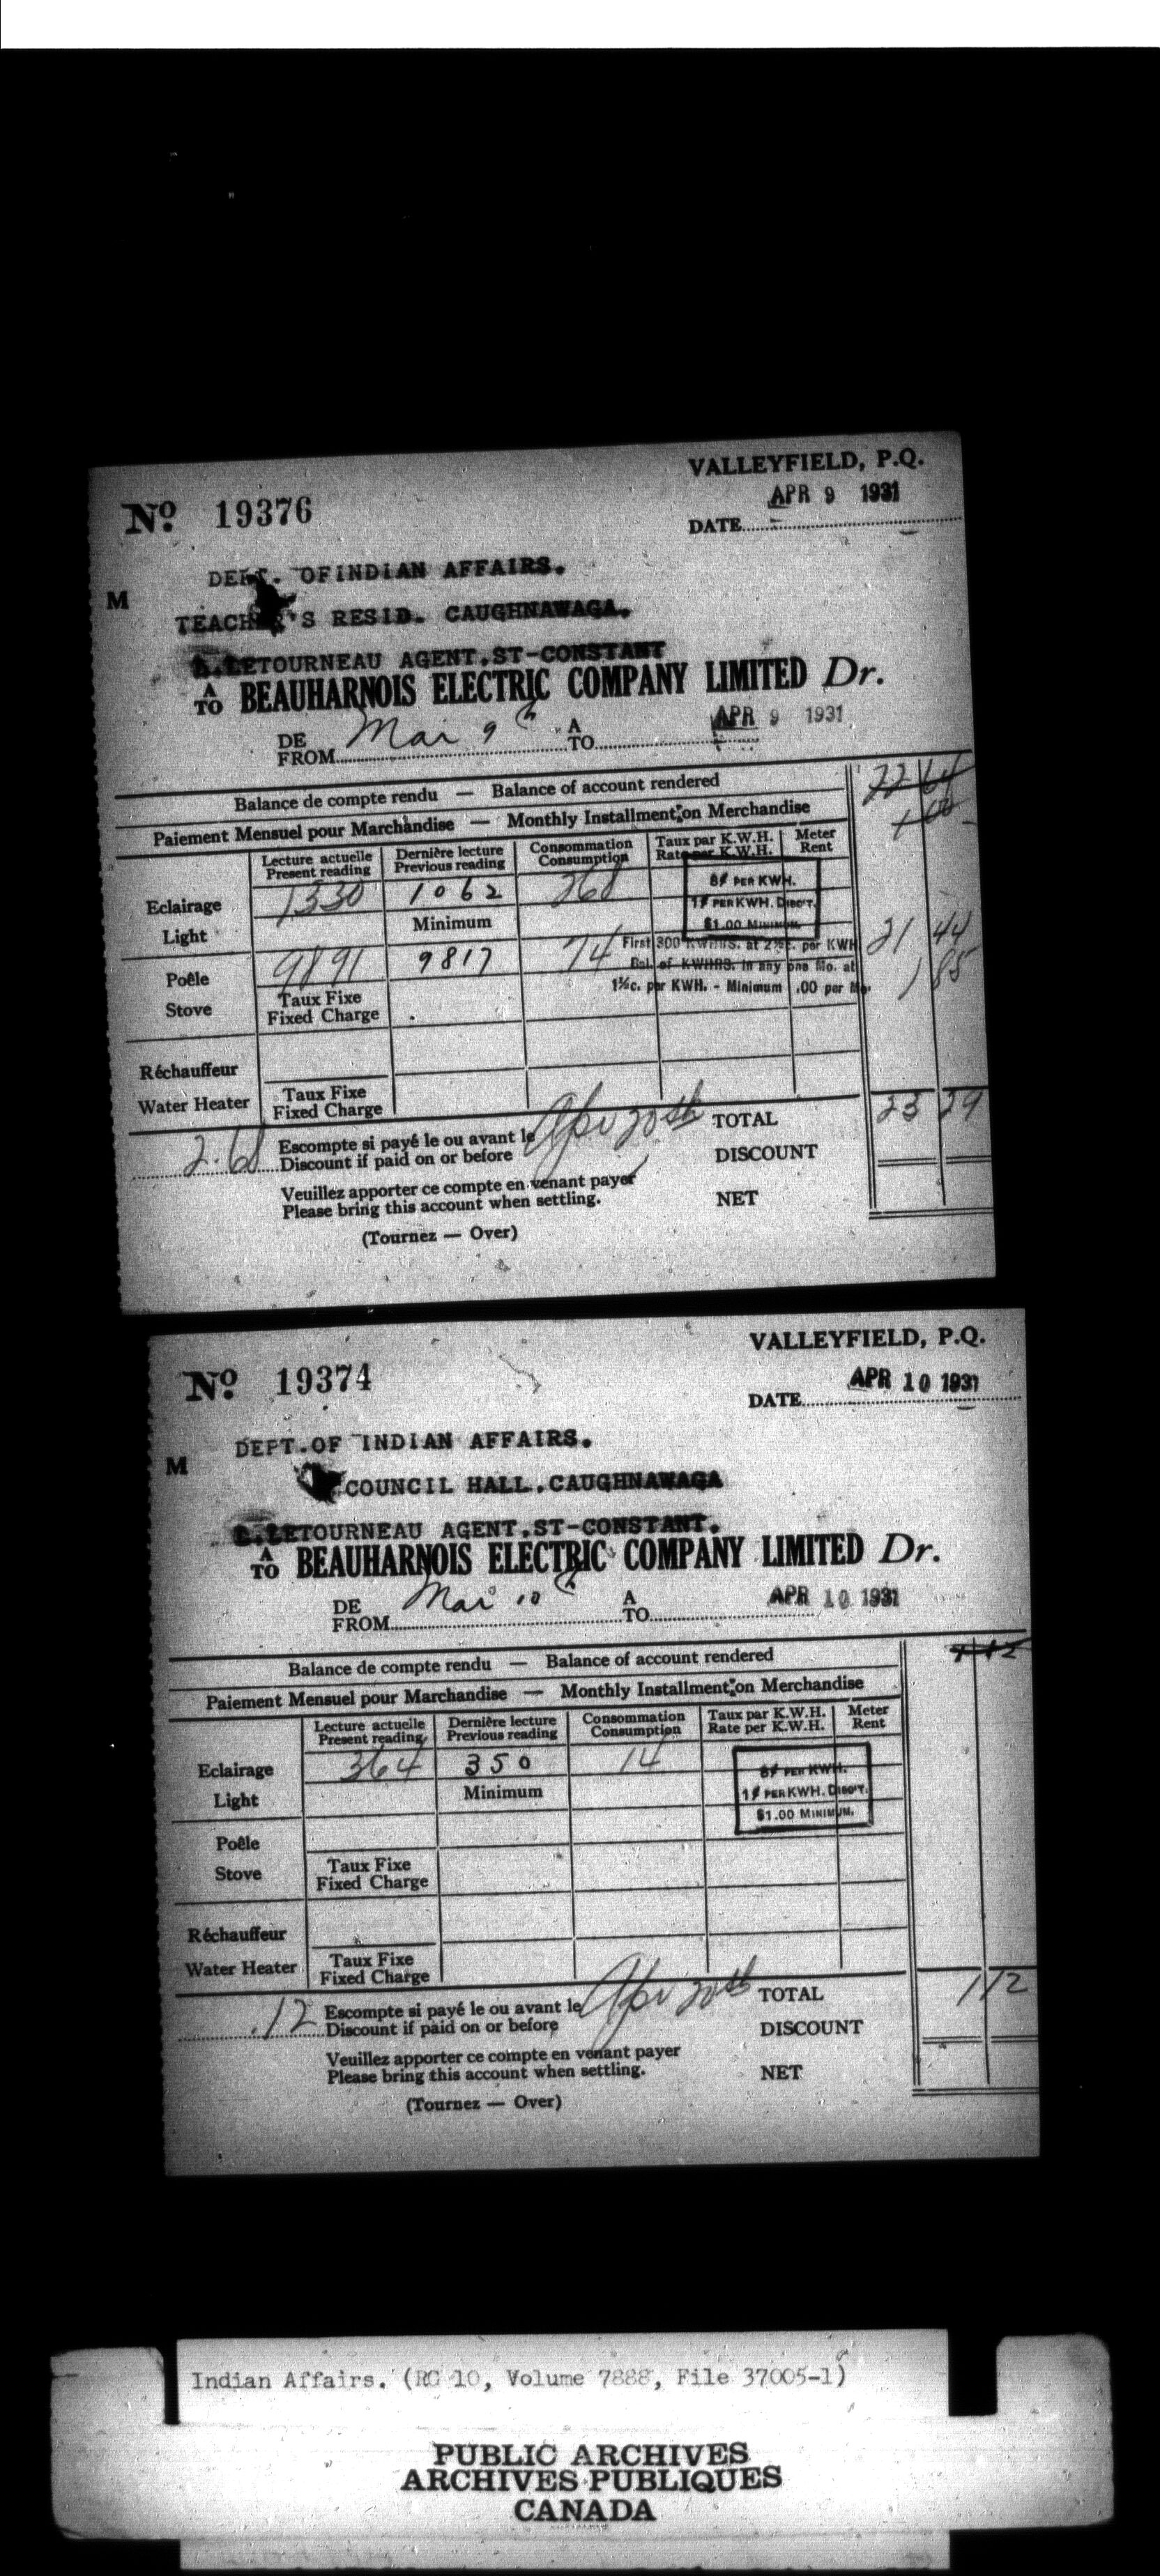 VALLEYFIELD, P.Q.
Nº 19376
APR 9 1931
DATE
DEPT. OF INDIAN AFFAIRS.
M
TEACHER'S RESID. CAUGHNAWAGA.
L.LETOURNEAU AGENT.ST-CONSTANT
A TO BEAUHARNOIS ELECTRIC COMPANY LIMITED Dr.
DE FROM Mar 9th A TO APR 9 1931
Balance de compte rendu — Balance of account rendered 22 64
Paiement Mensuel pour Marchandise — Monthly Installment on Merchandise 1 00
Lecture actuelle Present reading Dernière lecture Previous reading Consommation Consumption Taux par K.W.H. Rate per K.W.H. Meter Rent
Eclairage 1330 1062 268 8¢ PER KWH.
1¢ PER KWH. DISC'T.
Light Minimum $1.00 MINIMUM. 21 44
Poêle 9891 9817 74 First 300 KWHRS. at 2½c. per KWH 1 85
Bal. of KWHRS. in any one Mo. at
Stove Taux Fixe Fixed Charge 1½c. per KWH. - Minimum .00 per Mo.
Réchauffeur
Water Heater Taux Fixe Fixed Charge
2.68 Escompte si payé le ou avant le Discount if paid on or before Apr 20th TOTAL 23 29
DISCOUNT
Veuillez apporter ce compte en venant payer
Please bring this account when settling. NET
(Tournez — Over)
VALLEYFIELD, P.Q.
Nº 19374
APR 10 1931
DATE
DEPT.OF INDIAN AFFAIRS.
M
COUNCIL HALL.CAUGHNAWAGA
L.LETOURNEAU AGENT.ST-CONSTANT.
A TO BEAUHARNOIS ELECTRIC COMPANY LIMITED Dr.
DE FROM Mar 10th A TO APR 10 1931
Balance de compte rendu — Balance of account rendered 1 12
Paiement Mensuel pour Marchandise — Monthly Installment on Merchandise
Lecture actuelle Present reading Dernière lecture Previous reading Consommation Consumption Taux par K.W.H. Rate per K.W.H. Meter Rent
Eclairage 364 350 14 8¢ PER KWH.
1¢ PER KWH. DISC'T.
Light Minimum $1.00 MINIMUM.
Poêle
Stove Taux Fixe Fixed Charge
Réchauffeur
Water Heater Taux Fixe Fixed Charge
.12 Escompte si payé le ou avant le Discount if paid on or before Apr 20th TOTAL 1 12
DISCOUNT
Veuillez apporter ce compte en venant payer
Please bring this account when settling. NET
(Tournez — Over)
Indian Affairs. (RG 10, Volume 7888, File 37005-1)
PUBLIC ARCHIVES
ARCHIVES PUBLIQUES
CANADA